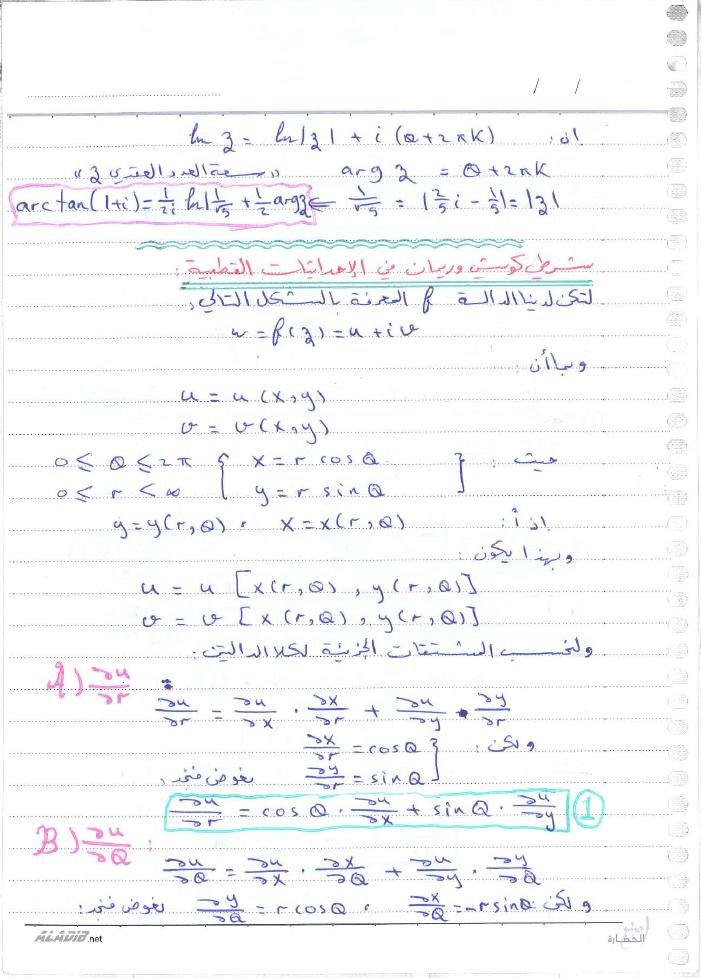 / /
اذ: ln z = ln|z| + i (θ+2πK)
arg z = θ+2πK "سعة العدد العقدي z"
arctan(1+i) = 1/2i ln|1/√5| + 1/2 arg z ⇐ 1/√5 = |2/5 i - 1/5| = |z|
شرطي كوشي وريمان في الإحداثيات القطبية:
لتكن لدينا الدالة f المعرفة بالشكل التالي,
w = f(z) = u + iv
وبما أن:
u = u(x,y)
v = v(x,y)
حيث: { x = r cosθ 0 ≤ θ ≤ 2π
{ y = r sinθ 0 ≤ r < ∞
اذاً: x = x(r,θ) , y = y(r,θ)
وبهذا يكون:
u = u [x(r,θ) , y(r,θ)]
v = v [x(r,θ) , y(r,θ)]
ولنحسب المشتقات الجزئية لكلا الدالتين:
A) ∂u/∂r :
∂u/∂r = ∂u/∂x · ∂x/∂r + ∂u/∂y · ∂y/∂r
ولكن: ∂x/∂r = cosθ
∂y/∂r = sinθ } نعوض فنجد,
∂u/∂r = cosθ · ∂u/∂x + sinθ · ∂u/∂y ①
B) ∂u/∂θ :
∂u/∂θ = ∂u/∂x · ∂x/∂θ + ∂u/∂y · ∂y/∂θ
ولكن: ∂x/∂θ = -r sinθ , ∂y/∂θ = r cosθ نعوض فنجد:
ALADIB.net
الحضارة